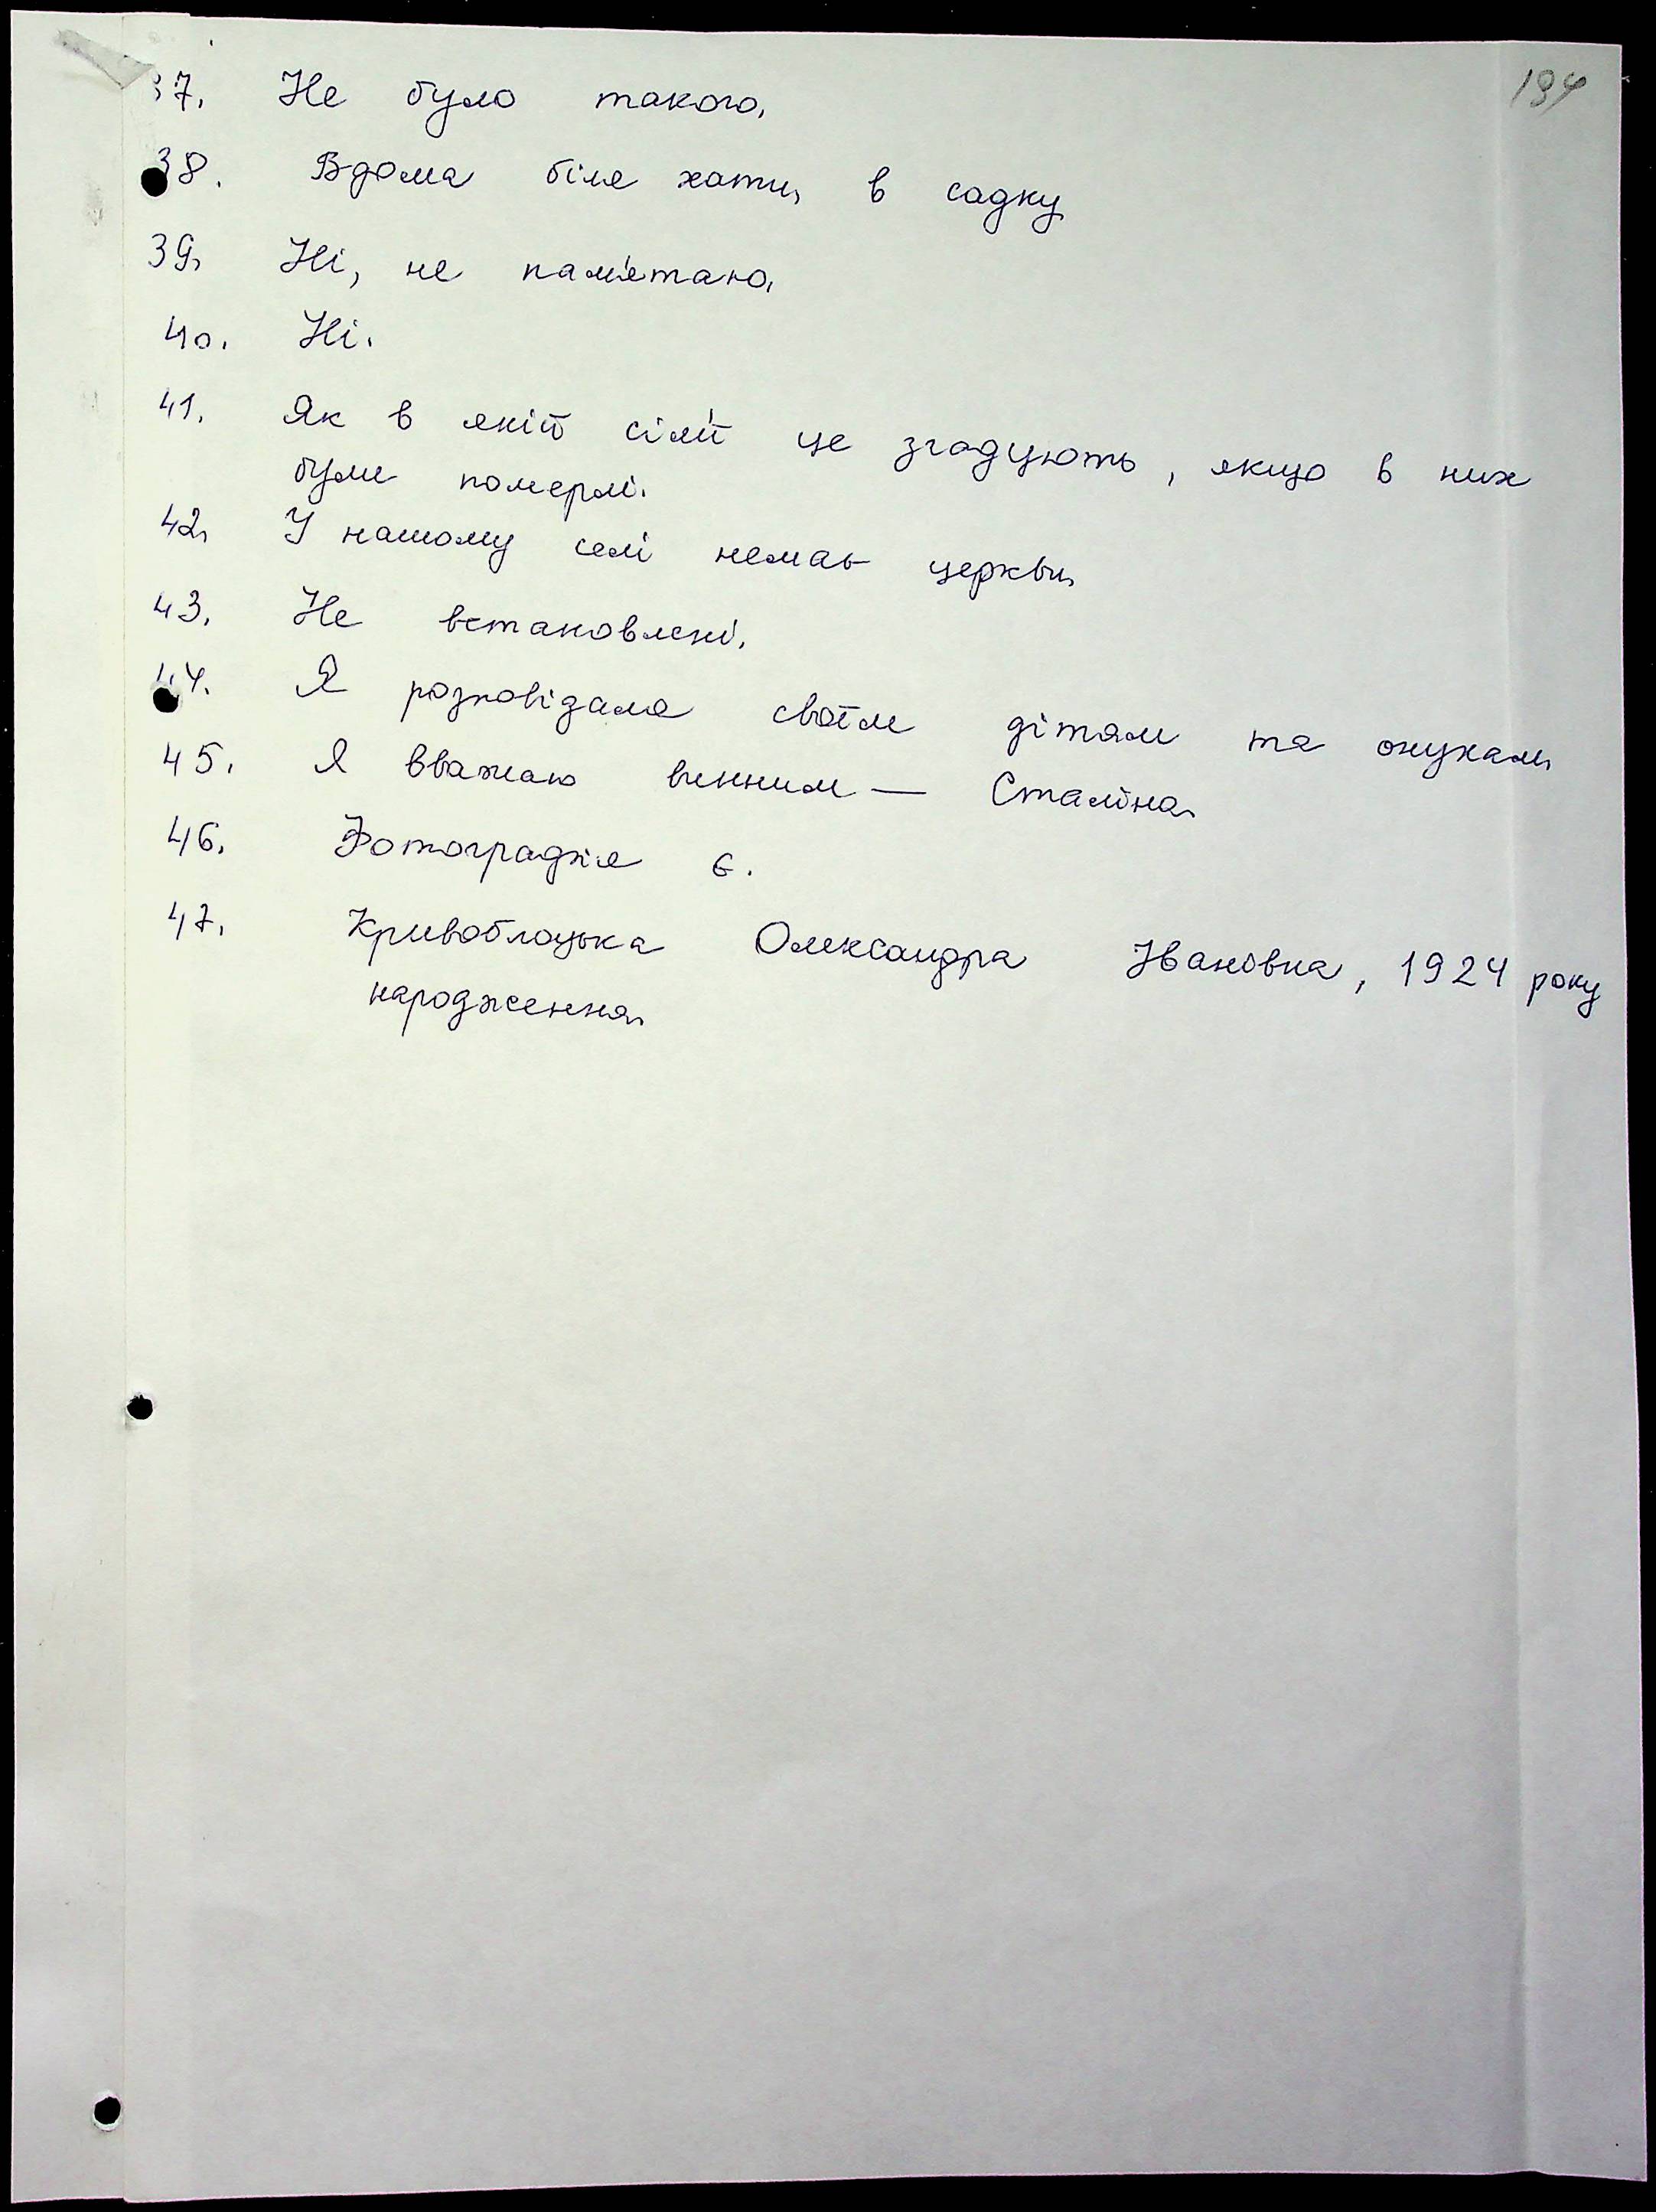 194
37. Не було такого.
38. Вдома біля хати, в садку
39. Ні, не пам'ятаю.
40. Ні.
41. Як в якій сім'ї це згадують, якщо в них
були померлі.
42. У нашому селі немає церкви.
43. Не встановлені.
44. Я розповідала своїм дітям та онукам.
45. Я вважаю винним — Сталіна.
46. Фотографія є.
47. Кривоблоцька Олександра Іванівна, 1924 року
народження.